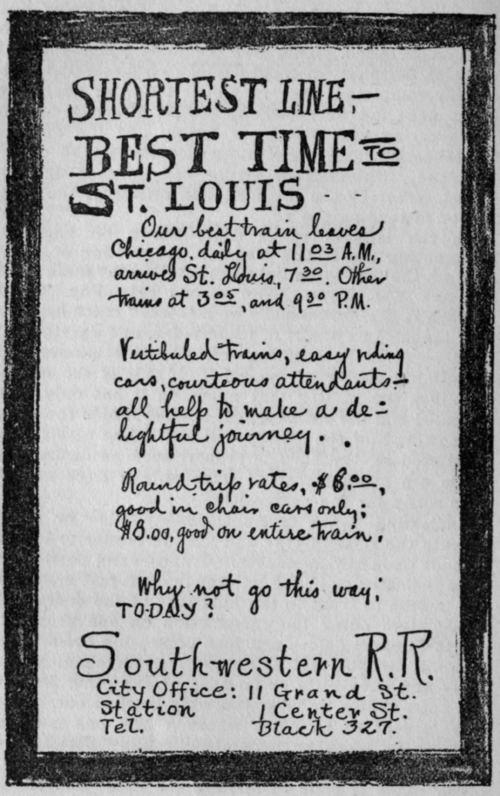 SHORTEST LINE,—
BEST TIME TO
ST. LOUIS
Our best train leaves
Chicago, daily at 11 03 A.M.,
arrives St. Louis, 7 30. Other
trains at 3 05, and 9 30 P.M.
Vestibuled trains, easy riding
cars, courteous attendants—
all help to make a de-
lightful journey.
Round trip rates, $6.00,
good in chair cars only;
$8.00, good on entire train.
Why not go this way;
TO-DAY?
Southwestern R.R.
City Office: 11 Grand St.
Station 1 Center St.
Tel. Black 327.